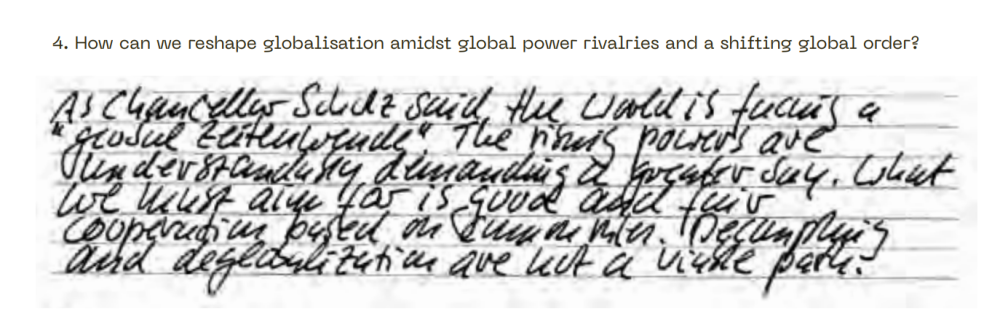 4. How can we reshape globalisation amidst global power rivalries and a shifting global order?
As Chancellor Scholz said, the world is facing a
"global Zeitenwende". The rising powers are
understandably demanding a greater say. What
we must aim for is good and fair
cooperation based on common rules. Decoupling
and deglobalization are not a viable path.